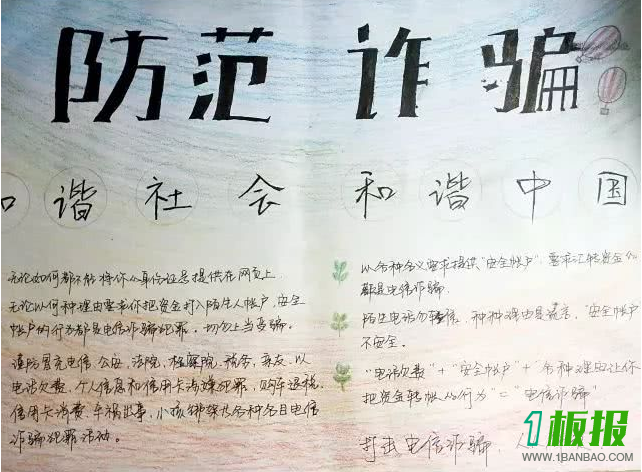 防范诈骗
和谐社会 和谐中国
无论如何都不能将你的身份证号提供在网页上
无论以何种理由要求你把资金打入陌生人帐户,安全
帐户的行为都是电信诈骗犯罪。切勿上当受骗。
谨防冒充电信、公安、法院、检察院、税务、亲友、以
电话欠费、个人信息和信用卡涉嫌犯罪,购车退税,
信用卡消费、车祸出事、小孩绑架等各种名目电信
诈骗犯罪活动。
以各种名义要求提供“安全帐户”要求汇转资金的
都是电信诈骗
陌生电话勿轻信,种种理由是谎言,“安全帐户”
不安全。
“电话欠费”+“安全帐户”+“各种理由让你
把资金转帐的行为”=“电信诈骗”
打击电信诈骗
1板报
WWW.1BANBAO.COM